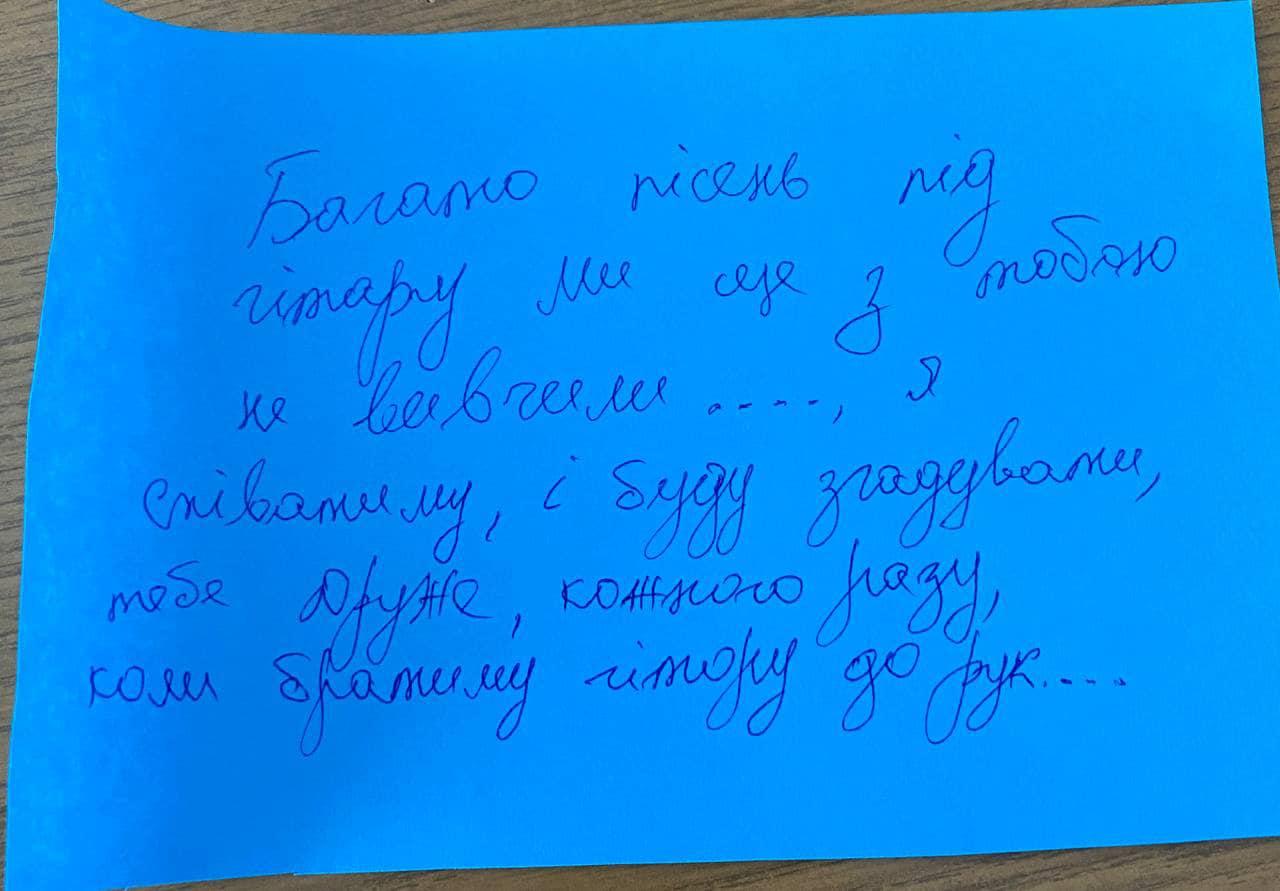 Багато пісень під
гітару ми ще з тобою
не вивчили ...., я
співатиму, і буду згадувати,
тебе друже, кожного разу,
коли братиму гітару до рук....